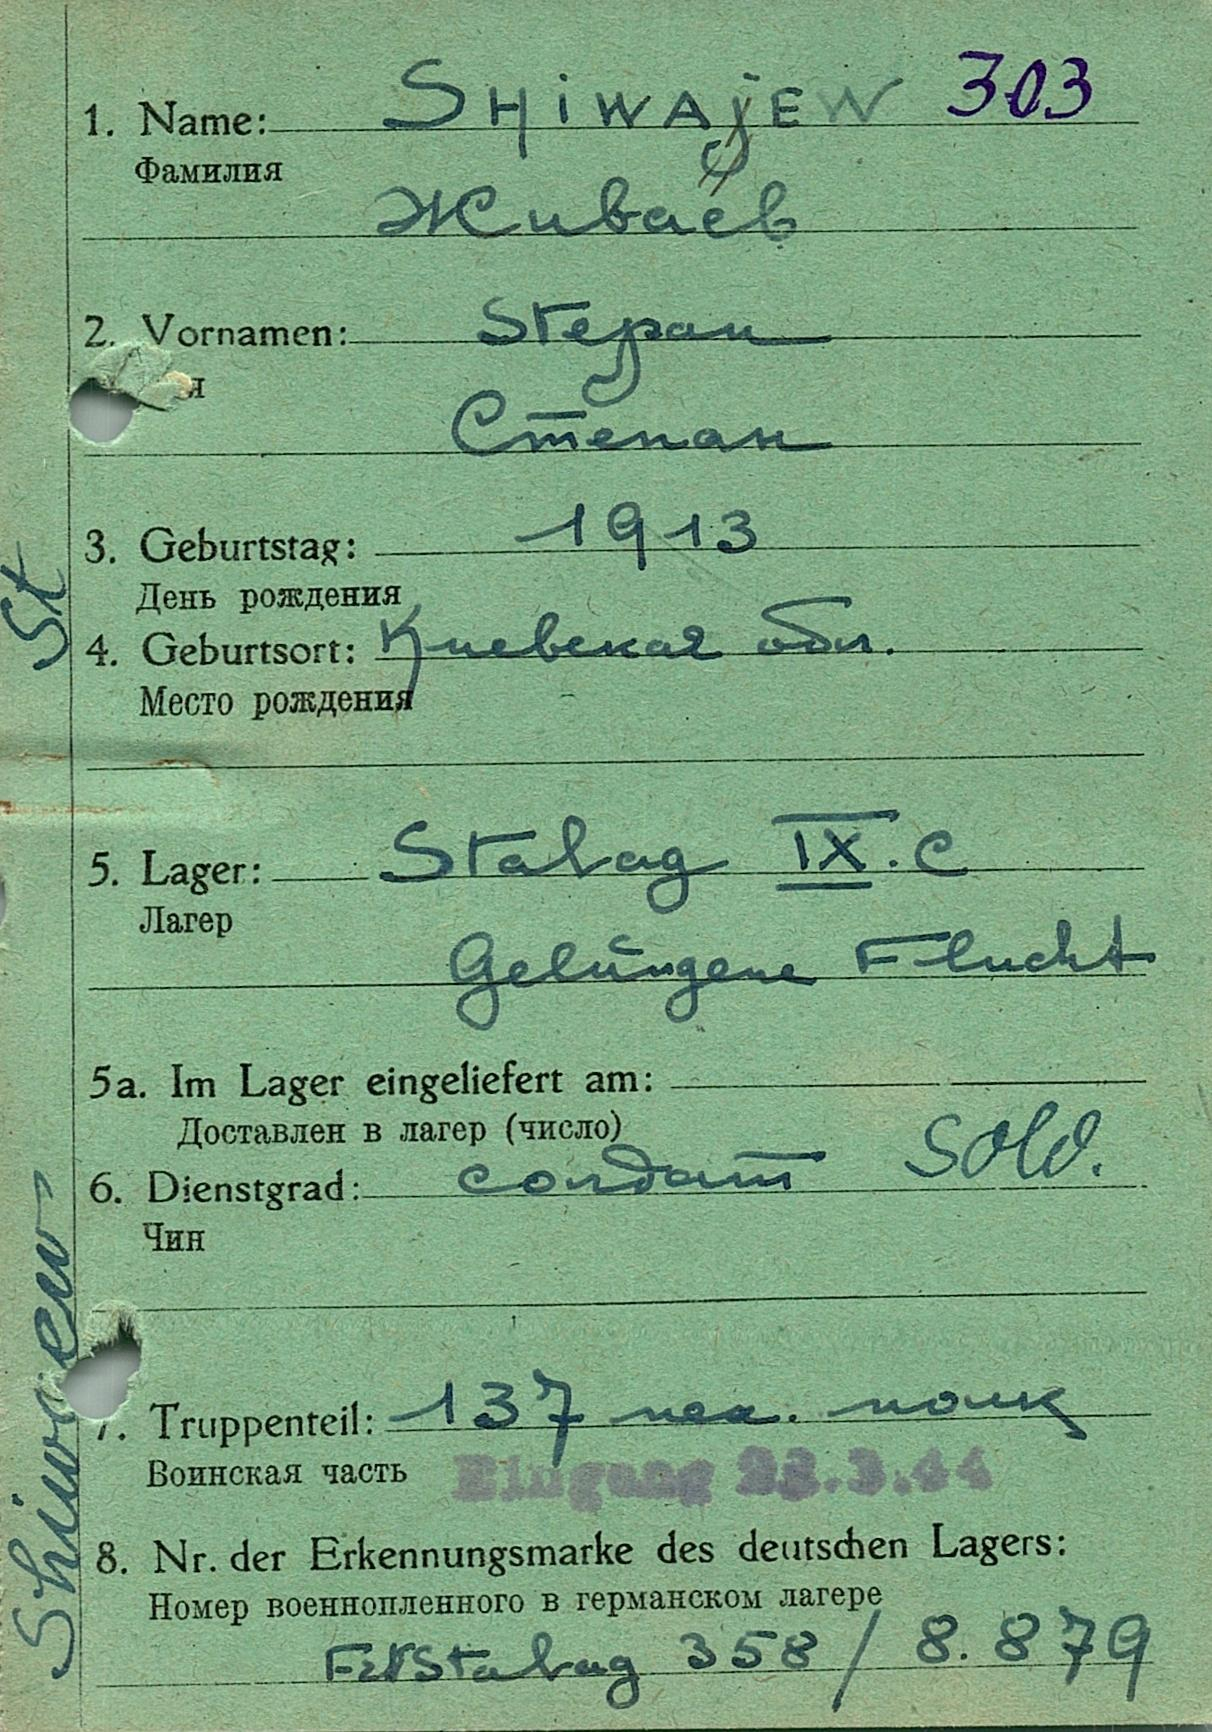 SHIWAJEW 303
1. Name:
Фамилия
Живаев
2. Vornamen: Stepan
я
Степан
3. Geburtstag: 1913
День рождения
4. Geburtsort: Киевская обл.
Место рождения
5. Lager: Stalag IX.C
Лагер
Gelungene Flucht
5a. Im Lager eingeliefert am:
Доставлен в лагер (число)
6. Dienstgrad: солдат Sold.
Чин
7. Truppenteil: 137 пех. полк
Воинская часть
Eingang 23.3.44
8. Nr. der Erkennungsmarke des deutschen Lagers:
Номер военнопленного в германском лагере
Stalag 358 / 8.879
Shiwaew St